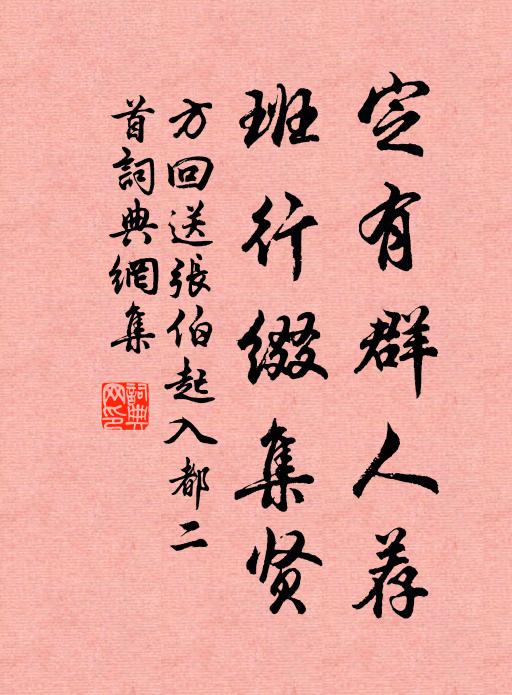 定有群人荐
班行缀集贤
方回送張伯起入都二
首詞典網集
詞典网印